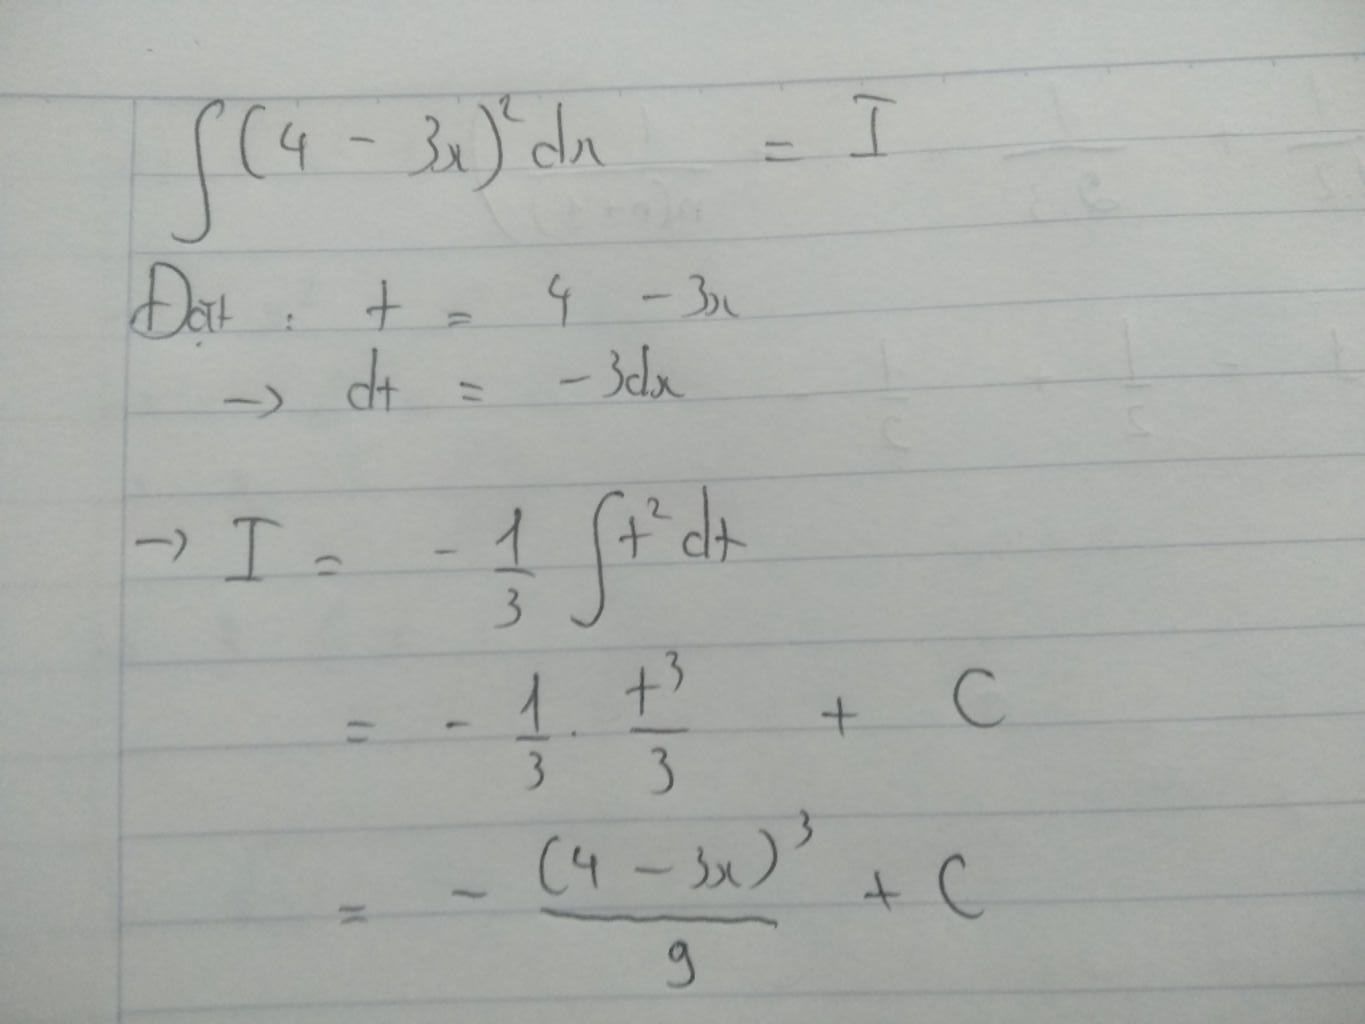 ∫(4 - 3x)² dx = I
Đặt : t = 4 - 3x
→ dt = - 3dx
→ I = - 1/3 ∫t² dt
= - 1/3 . t³/3 + C
= - (4 - 3x)³/9 + C